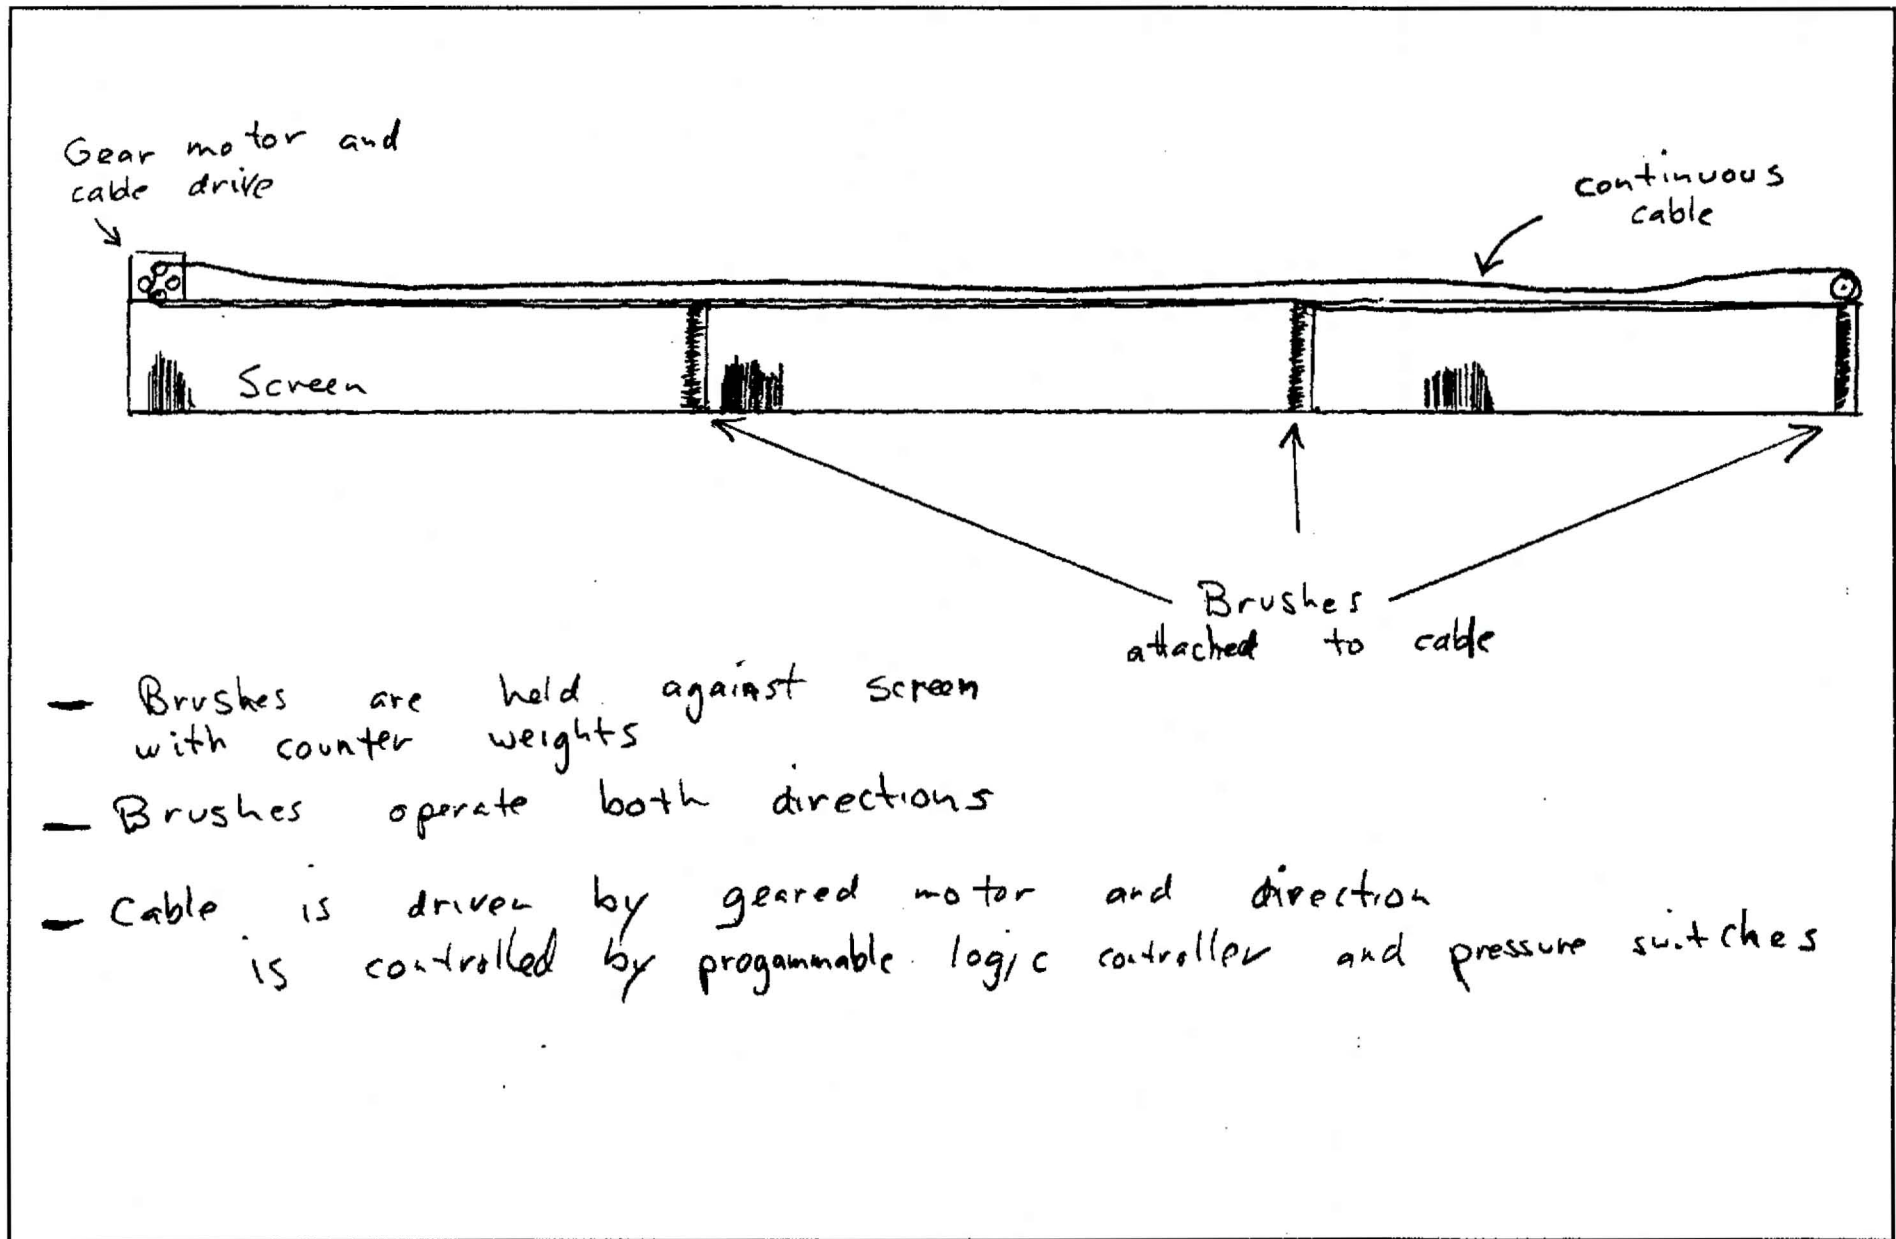 Gear motor and
cable drive
continuous
cable
Screen
Brushes
attached to cable
— Brushes are held against screen
with counter weights
— Brushes operate both directions
— Cable is driven by geared motor and direction
is controlled by progammable logic controller and pressure switches